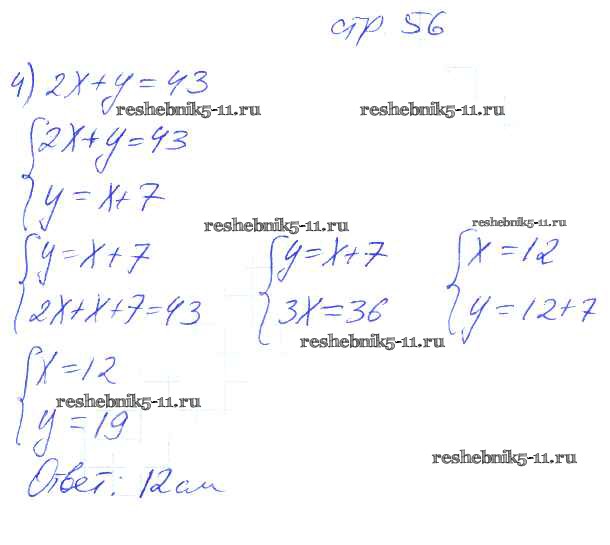 стр. 56
4) 2x+y=43
reshebnik5-11.ru reshebnik5-11.ru
{2x+y=43
y=x+7
reshebnik5-11.ru reshebnik5-11.ru
{y=x+7 {y=x+7 {x=12
2x+x+7=43 3x=36 y=12+7
reshebnik5-11.ru
{x=12
reshebnik5-11.ru
y=19
reshebnik5-11.ru
Ответ: 12см